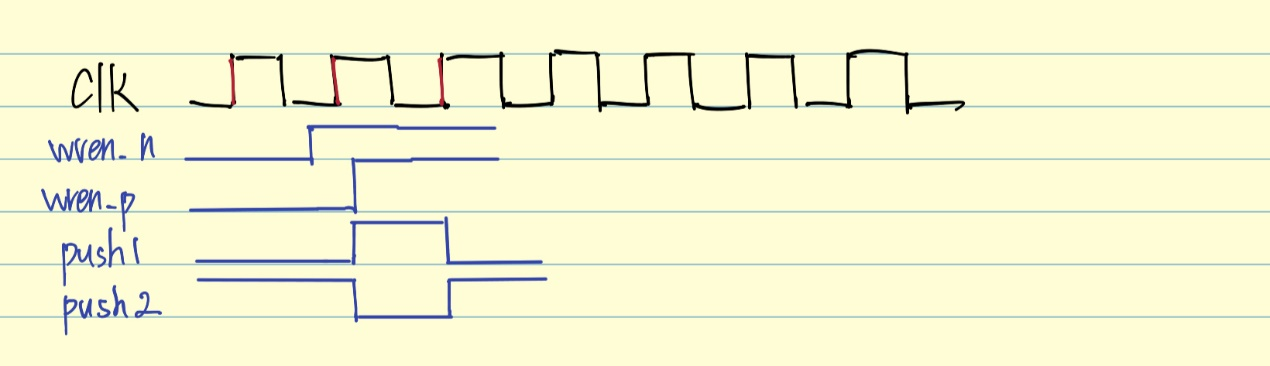 clk
wren_n
wren_p
push1
push2